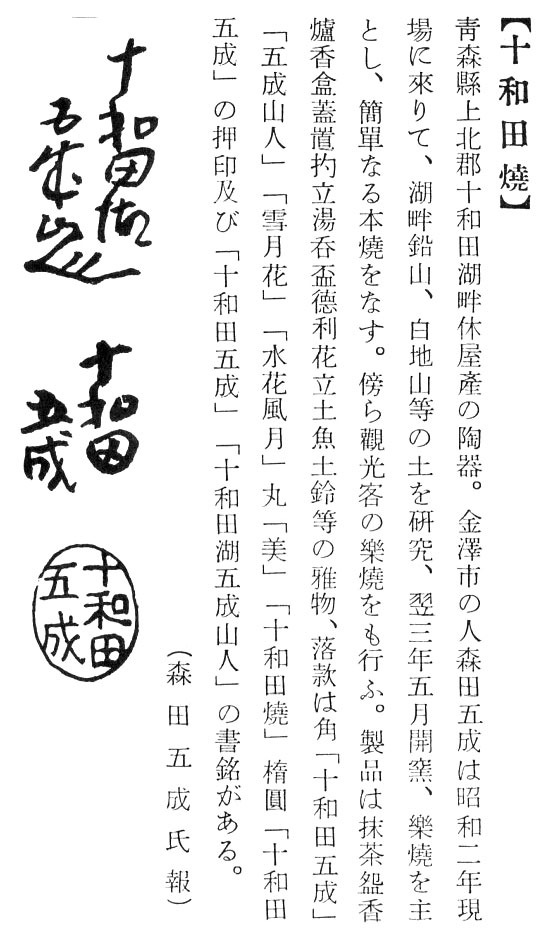 【十和田燒】
靑森縣上北郡十和田湖畔休屋產の陶器。金澤市の人森田五成は昭和二年現
場に來りて、湖畔鉛山、白地山等の土を硏究、翌三年五月開窯、樂燒を主
とし、簡單なる本燒をなす。傍ら觀光客の樂燒をも行ふ。製品は抹茶盌香
爐香盒蓋置杓立湯呑盃德利花立土魚土鈴等の雅物、落款は角「十和田五成」
「五成山人」「雪月花」「水花風月」丸「美」「十和田燒」楕圓「十和田
五成」の押印及び「十和田五成」「十和田湖五成山人」の書銘がある。
（森田五成氏報）
十和田湖
五成山人
十和田
五成
十和田
五成